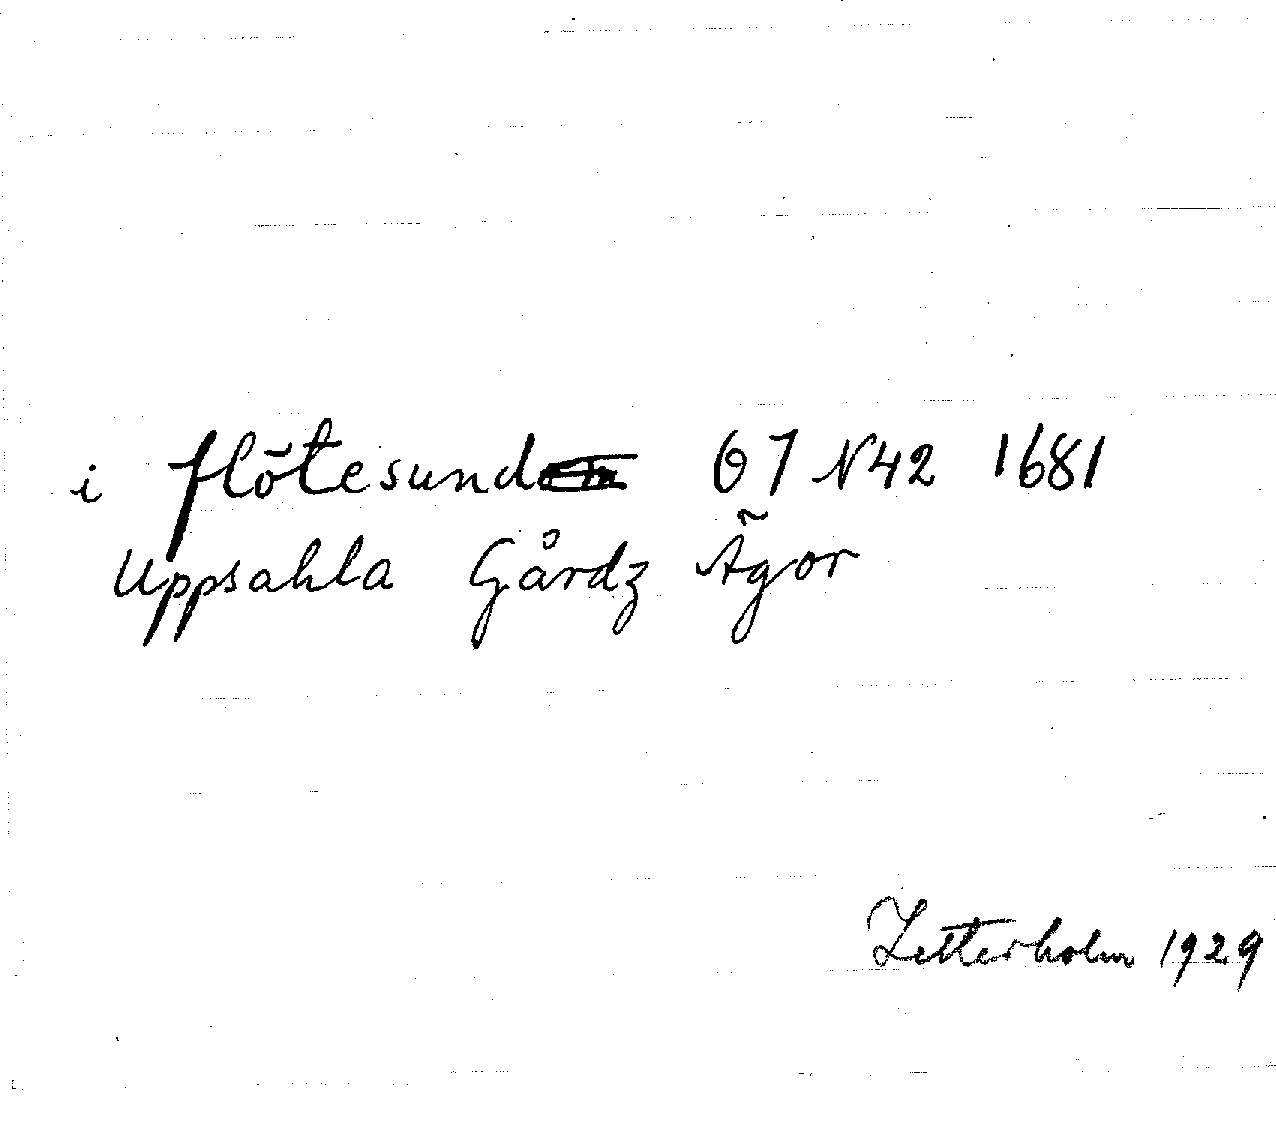 i flötesund Ö7 N42 1681
Uppsahla Gårdz Ägor
Zetterholm 1929